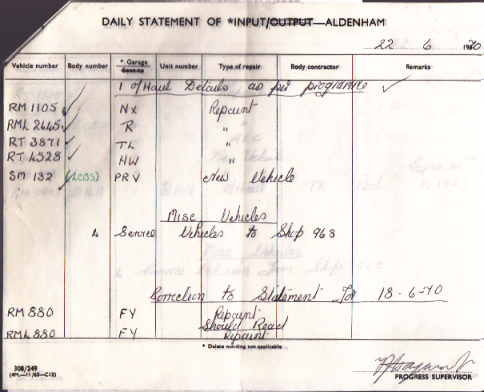 DAILY STATEMENT OF *INPUT/OUTPUT—ALDENHAM
22 6 1970
Vehicle number Body number * Garage Sent to Unit number Type of repair Body contractor Remarks
1 of Haul Details as per programme ✓
RM 1105 ✓ NX Repaint
RML 2645 ✓ R "
RT 3871 ✓ TL "
RT 4528 ✓ HW "
SM 132 (LCBS) PRV New Vehicle
Misc Vehicles
4 Service Vehicles to Shop 968
Correction to Statement for 18-6-70
RM 880 FY Repaint
Should Read
RML 880 FY Repaint
* Delete wording not applicable
308/249
(4M.—11/65—C13)
PROGRESS SUPERVISOR